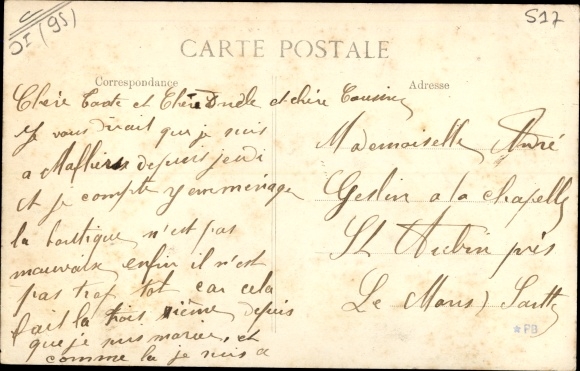 OI (95)
S17
CARTE POSTALE
Correspondance
Adresse
Chère Tante et Chère Oncle et chère Cousine
Je vous dirait que je suis
a Maffliers depuis jeudi
et je compte y emménager
la boutique n'est pas
mauvaise enfin il n'est
pas trop tot car cela
fait la trois sième depuis
que je suis marier, et
comme la je suis a
Mademoiselle André
Geslin a la chapelle
St Aubin près
Le Mans) Sarthe
PB